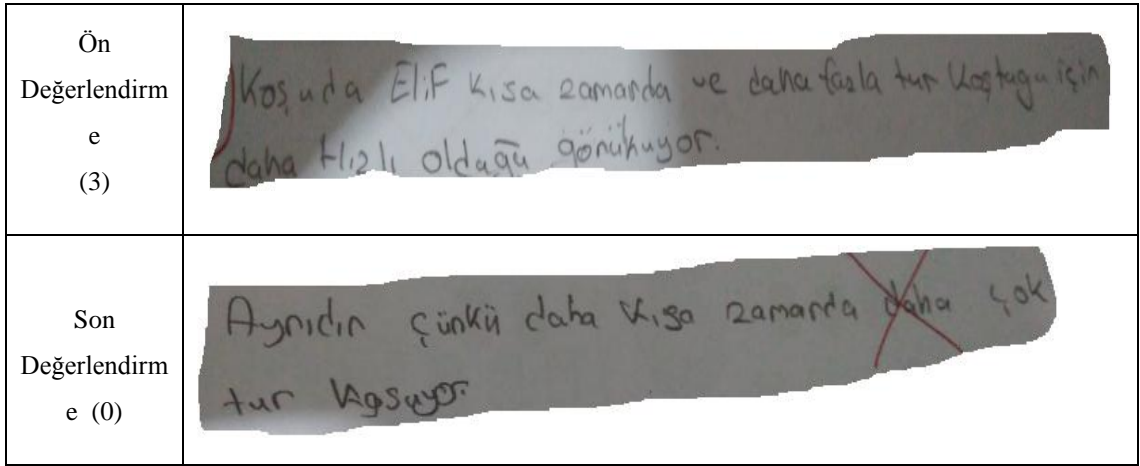 Ön
Değerlendirm
e
(3)
Koşuda Elif kısa zamanda ve daha fazla tur koştuğu için
daha Hızlı olduğu gönükuyor.
Son
Değerlendirm
e (0)
Aynıdır çünkü daha kısa zamanda daha çok
tur koşuyor.